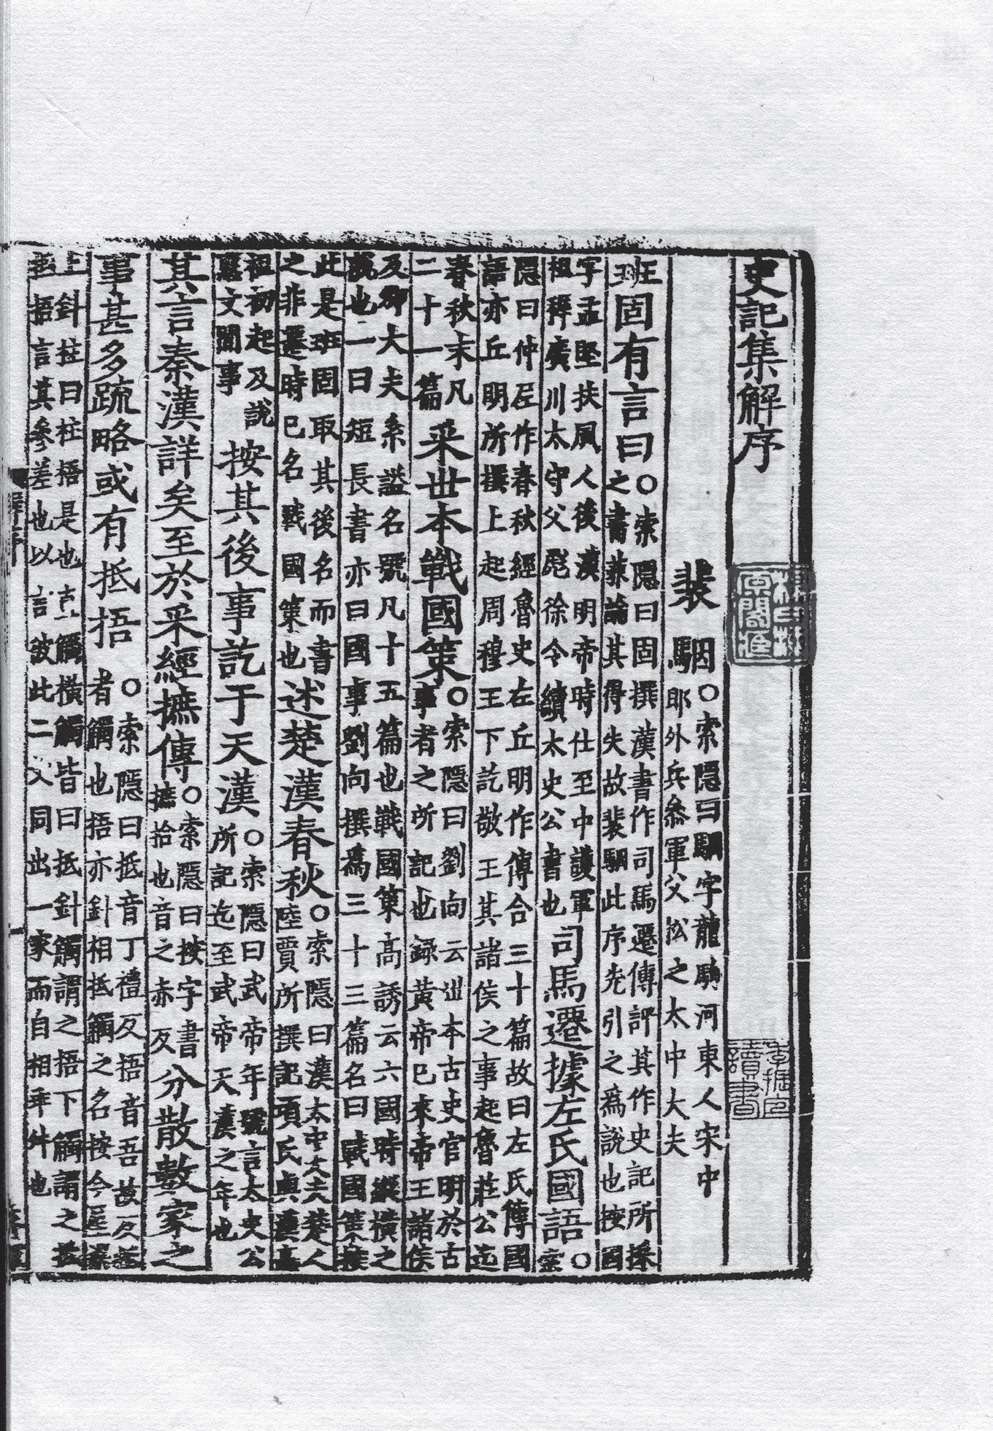 史記集解序
裴駰○索隱曰駰字龍駒河東人宋中郎外兵參軍父松之太中大夫
班固有言曰○索隱曰固撰漢書作司馬遷傳評其作史記所採之書兼論其得失故裴駰此序先引之爲說也按固
字孟堅扶風人後漢明帝時仕至中護軍祖穉廣川太守父彪徐令續太史公書也司馬遷據左氏國語○索
隱曰仲尼作春秋經魯史左丘明作傳合三十篇故曰左氏傳國語亦丘明所撰上起周穆王下訖敬王其諸侯之事起魯莊公迄
春秋末凡二十一篇采世本戰國策○索隱曰劉向云世本古史官明於古事者之所記也録黃帝已來帝王諸侯
及卿大夫系謚名號凡十五篇也戰國策高誘云六國時縱橫之說也一曰短長書亦曰國事劉向撰爲三十三篇名曰戰國策按
此是班固取其後名而書之非遷時已名戰國策也述楚漢春秋○索隱曰漢太中大夫楚人陸賈所撰記項氏與漢高
祖初起及說惠文閒事按其後事訖于天漢○索隱曰武帝年號言太史公所記迄至武帝天漢之年也
其言秦漢詳矣至於采經摭傳○索隱曰按字書摭拾也音之赤反分散數家之
事甚多疏略或有抵捂○索隱曰抵音丁禮反捂音吾故反抵者觸也捂亦斜相抵觸之名按今屋梁
上斜柱曰柱梧是也直觸橫觸皆曰抵斜觸謂之捂下觸謂之抵抵捂言其參差也以言彼此二文同出一家而自相乖舛也